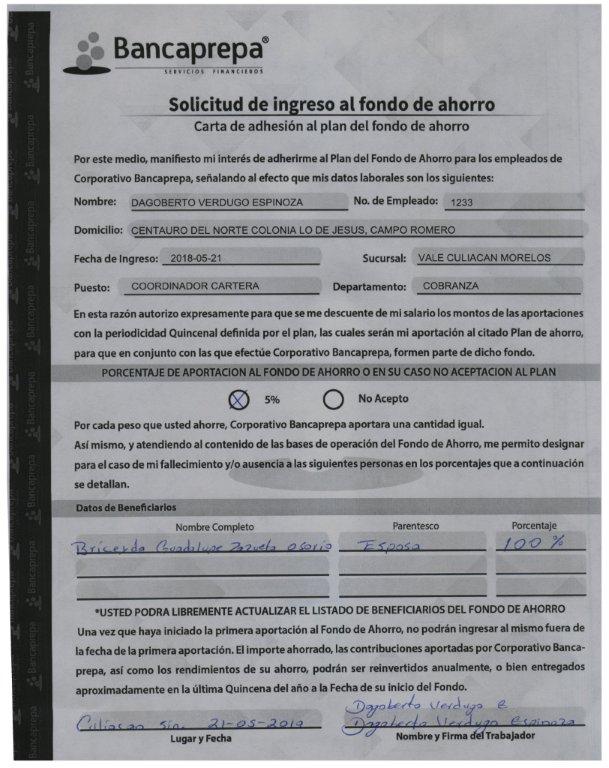 Bancaprepa®
SERVICIOS FINANCIEROS
Solicitud de ingreso al fondo de ahorro
Carta de adhesión al plan del fondo de ahorro
Por este medio, manifiesto mi interés de adherirme al Plan del Fondo de Ahorro para los empleados de
Corporativo Bancaprepa, señalando al efecto que mis datos laborales son los siguientes:
Nombre: DAGOBERTO VERDUGO ESPINOZA No. de Empleado: 1233
Domicilio: CENTAURO DEL NORTE COLONIA LO DE JESUS, CAMPO ROMERO
Fecha de Ingreso: 2018-05-21 Sucursal: VALE CULIACAN MORELOS
Puesto: COORDINADOR CARTERA Departamento: COBRANZA
En esta razón autorizo expresamente para que se me descuente de mi salario los montos de las aportaciones
con la periodicidad Quincenal definida por el plan, las cuales serán mi aportación al citado Plan de ahorro,
para que en conjunto con las que efectúe Corporativo Bancaprepa, formen parte de dicho fondo.
PORCENTAJE DE APORTACION AL FONDO DE AHORRO O EN SU CASO NO ACEPTACION AL PLAN
X 5% No Acepto
Por cada peso que usted ahorre, Corporativo Bancaprepa aportara una cantidad igual.
Así mismo, y atendiendo al contenido de las bases de operación del Fondo de Ahorro, me permito designar
para el caso de mi fallecimiento y/o ausencia a las siguientes personas en los porcentajes que a continuación
se detallan.
Datos de Beneficiarios
Nombre Completo Parentesco Porcentaje
Guadalupe Zazueta Osorio Esposa 100 %
*USTED PODRA LIBREMENTE ACTUALIZAR EL LISTADO DE BENEFICIARIOS DEL FONDO DE AHORRO
Una vez que haya iniciado la primera aportación al Fondo de Ahorro, no podrán ingresar al mismo fuera de
la fecha de la primera aportación. El importe ahorrado, las contribuciones aportadas por Corporativo Banca-
prepa, así como los rendimientos de su ahorro, podrán ser reinvertidos anualmente, o bien entregados
aproximadamente en la última Quincena del año a la Fecha de su inicio del Fondo.
Dagoberto Verdugo e
Culiacan Sin. 21-05-2019 Dagoberto Verdugo Espinoza
Lugar y Fecha Nombre y Firma del Trabajador